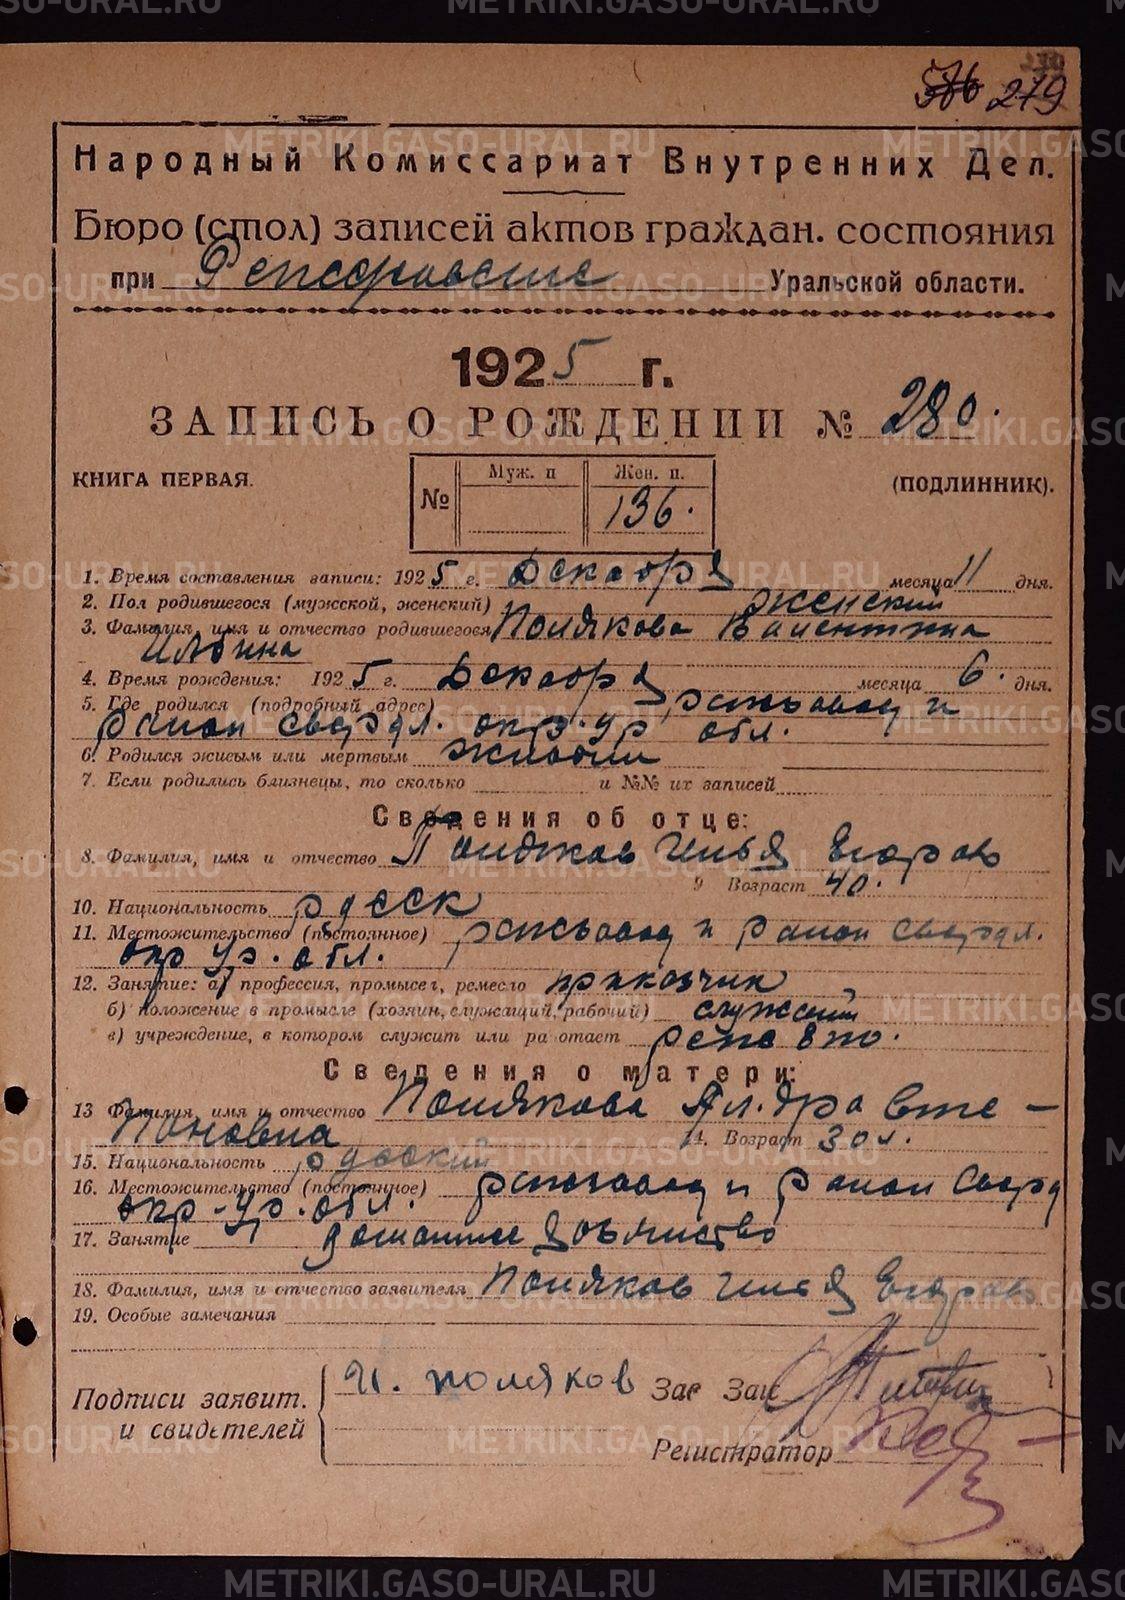 576 279
Народный Комиссариат Внутренних Дел.
Бюро (стол) записей актов граждан. состояния
при Уральской области.
1925 г.
ЗАПИСЬ О РОЖДЕНИИ № 280.
КНИГА ПЕРВАЯ. (ПОДЛИННИК).
№ Муж. п Жен. п.
136.
1. Время составления записи: 1925 г. Декабря месяца 11 дня.
2. Пол родившегося (мужской, женский) женский
3. Фамилия, имя и отчество родившегося Полякова Валентина
Ильина
4. Время рождения: 1925 г. Декабря месяца 6. дня.
5. Где родился (подробный адрес) режзавод и
район свердл. окр. ур обл.
6. Родился живым или мертвым живой
7. Если родились близнецы, то сколько и №№ их записей
Сведения об отце:
8. Фамилия, имя и отчество Поляков Илья Егоров
9 Возраст 40.
10. Национальность русск
11. Местожительство (постоянное) режзавод и район свердл.
окр ур. обл.
12. Занятие: а) профессия, промысел, ремесло приказчик
б) положение в промысле (хозяин, служащий, рабочий) служащий
в) учреждение, в котором служит или ра отает
Сведения о матери:
13 Фамилия, имя и отчество Полякова Ал.дра
14. Возраст 30 л.
15. Национальность русский
16. Местожительство (постоянное) режзавод и район сверд
окр. ур. обл.
17. Занятие домашнее хозяйство
18. Фамилия, имя и отчество заявителя Поляков Илья Егоров
19. Особые замечания
Подписи заявит. и свидетелей И. поляков Зав Заг
Регистратор
METRIKI.GASO-URAL.RU